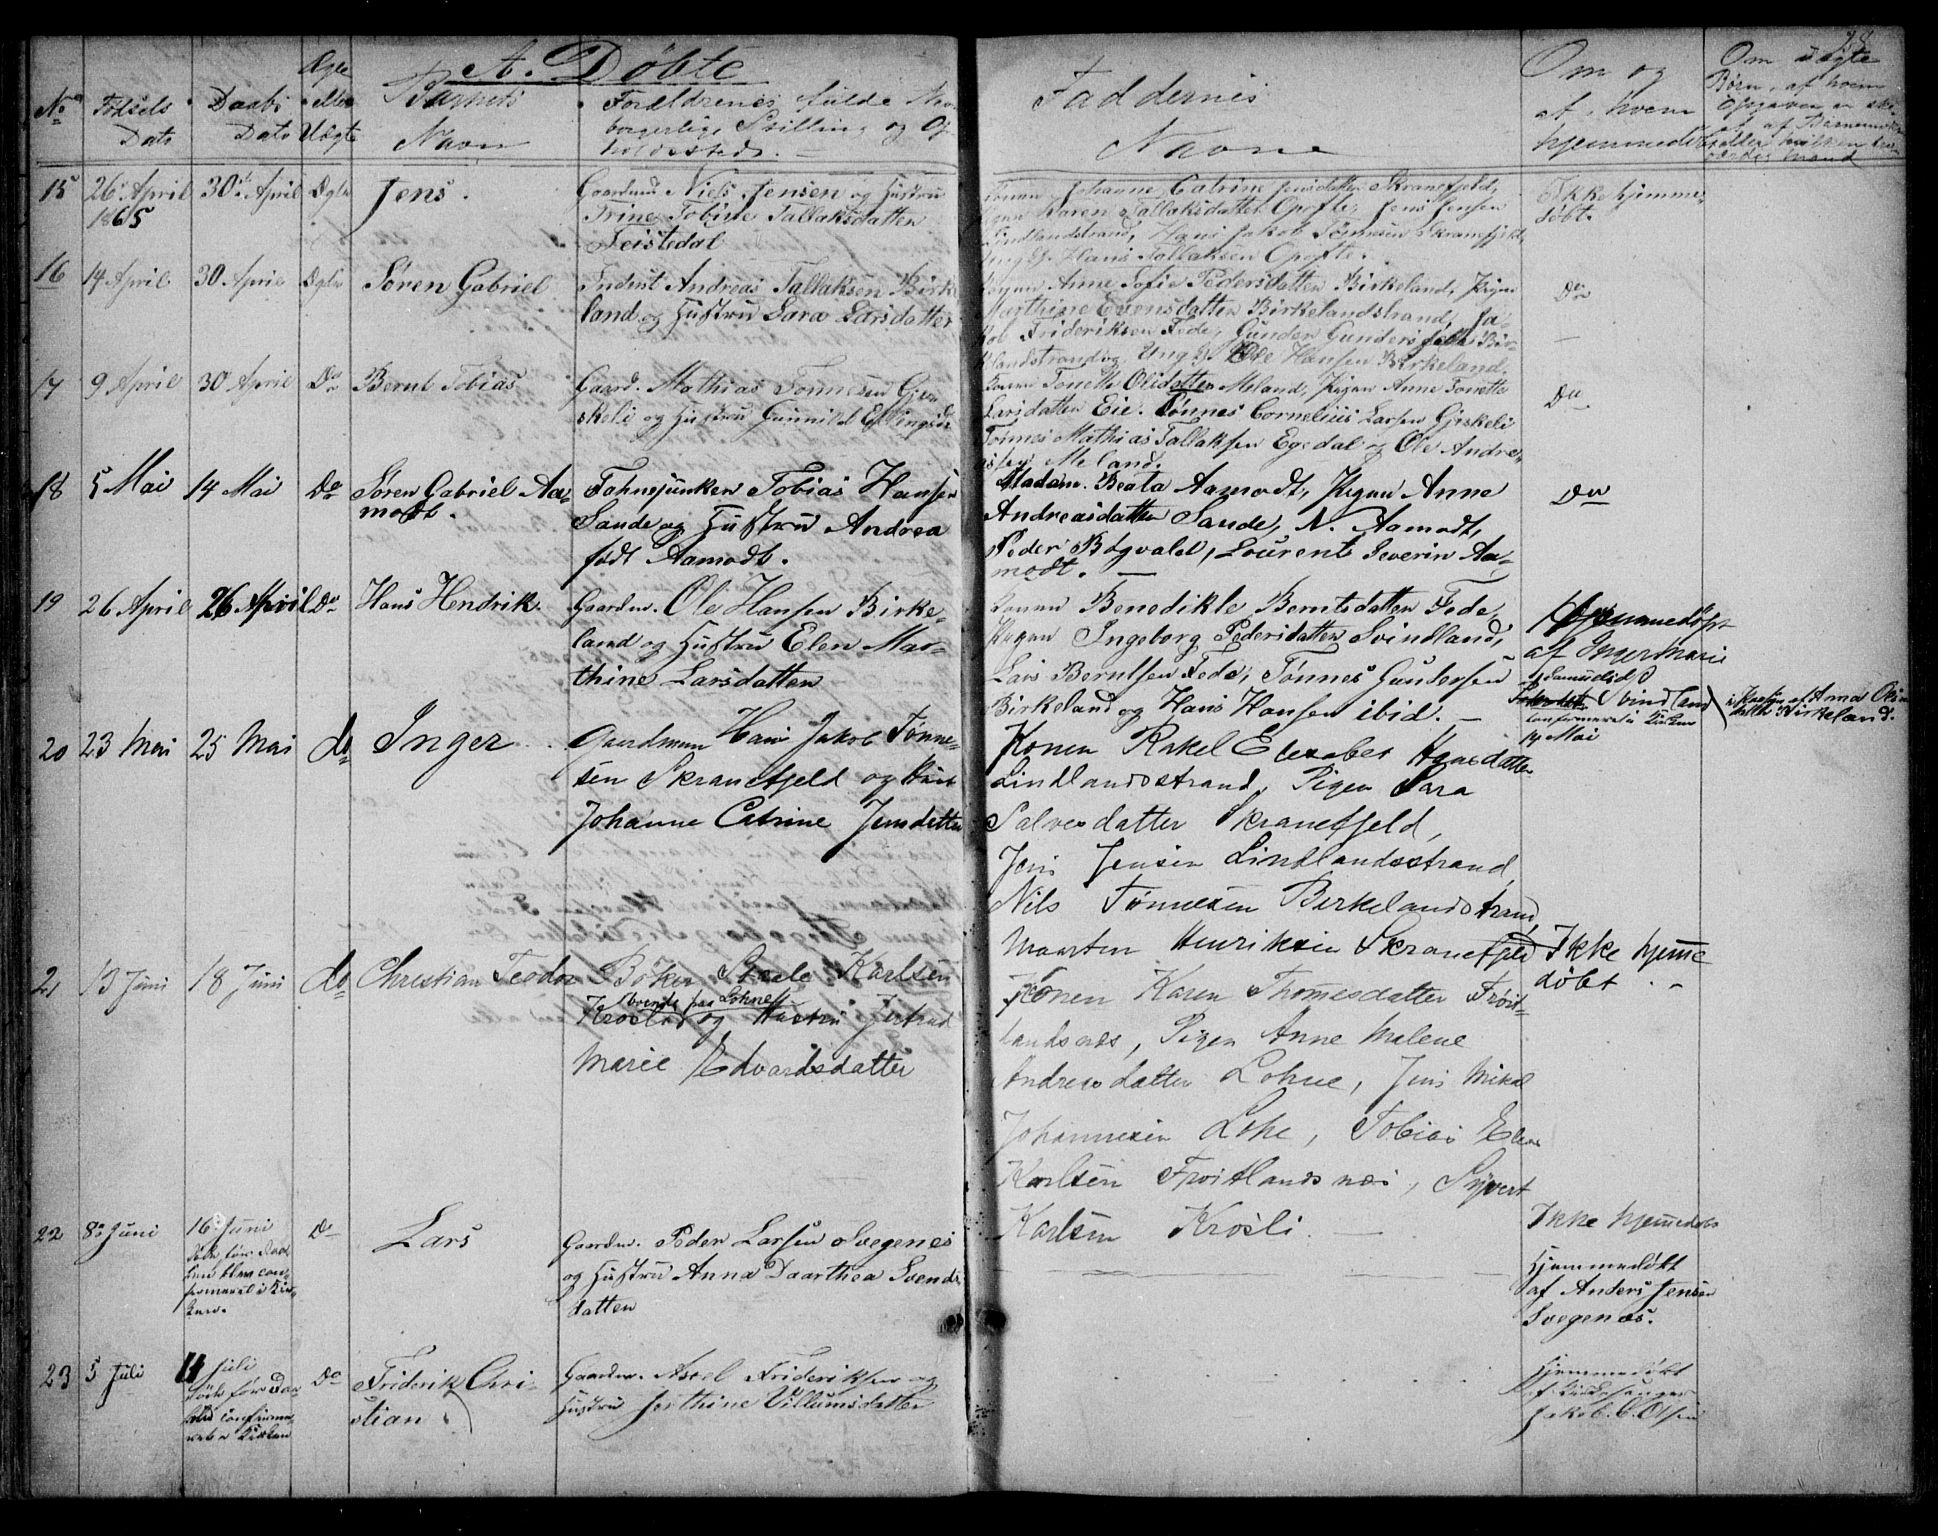 28
A. Døbte
No
Fødsels
Dato
Daabs
Dato
Ægte
eller
Uægte
Barnets
Navn
Forældrenes fulde Nav
borgerlige Stilling og Op
holdssted. —
Faddernes
Navne
Om og
af hvem
hjemmedöbt
Om uægte
Børn, af hvem
Opgaven er ske
15
26. April
1865
30te April
Ægte
Jens.
Gaardmd. Niels Jensen og Hustru
Trine Tobine Tallaksdatter
Feistedal
Konen Johanne Catrine Jensdatter Skranefjeld,
Karen Tallaksdatter Opofte, Jens Jensen
Lindlandstrand, Hans Jakob Tønnesen Skranefjeld,
Ung. Hans Tallaksen Opofte.
Ikke hjemme,
døbt.
16
14 April
30 April
Ægte
Søren Gabriel
Inderst Andreas Tallaksen Birke
land og Hustru Sara Larsdatter
Anne Sofie Pedersdatter Birkeland, Pigen
Marthine Evensdatter Birkelandstrand, Ja-
kob Frideriksen Fede, Gunder Gundersen Bir-
kelandstrand og Ung. Ole Hansen Birkeland.
Do
17
9 April
30 April
Do
Bernt Tobias
Gaard. Mathias Tønnesen Gjer
skeli og Hustru Gunnild Ellingsdr
Konen Tonette Olsdatter Meland, Pigen Anne Tonette
Larsdatter Eie. Tønnes Cornelius Larsen Gjerskeli
Tønnes Mathias Tallaksen Egedal og Ole Andre-
asen Meland.
Do
18
5 Mai
14 Mai
Do
Søren Gabriel Aa-
modt.
Fahnejunker Tobias Hansen
Sande og Hustru Andrea
født Aamodt.
Madam. Beata Aamodt, Pigen Anne
Andreasdatter Sande, N. Aamodt,
Peder Bøgvald, Lourents Severin Aa-
modt. —
Do
19
26 April
26 April
Do
Hans Hendrik
Gaardm. Ole Hansen Birke-
land og Hustru Elen Mar-
thine Larsdatter
Konen Benedikte Berntsdatter Fede,
Pigen Ingeborg Pedersdatter Svindland,
Lars Berntsen Fede, Tønnes Guntersen
Birkeland og Hans Hansen ibid. —
Hjemmedöbt
af Inger Marie
Samuelsd
Svindland
confirmeret i Kirken
14 Mai
Anna Ols
datter Birkeland.
20
23 Mai
25 Mai
do
Inger
Gaardmun Hans Jakob Tønne-
sen Skranefjeld og Hust
Johanne Catrine Jensdatter
Konen Rakel Elesabet Hansdatter
Lindlandsstrand, Pigen Sara
Salvesdatter Skranefjeld,
Jens Jensen Lindlandsstrand,
Nils Tønnesen Birkelandstrand,
Maarten Henriksen Skranefjeld
Ikke hjemme
døbt. -
21
13 Juni
18 Juni
do
Christian Teodor
Bøker Staale Karlsen
boende paa Lohne
Krosli og Hustru Jertrud
Marie Edvardsdatter
Konen Karen Thomesdatter Frøit-
landsnes, Pigen Anne Malene
Andreasdatter Lohne, Jens Mikal
Johannesen Lohe, Tobias Elias
Karlsen Frøitlandsnes, Syvert
Karlsen Krosli. —
Ikke hjemmedøbt
22
8de Juni
16 Juni
Døde før Daa
ben blev con-
firmeret i Kir-
ken.
Do
Lars
Gaardm. Peder Larsen Svegenes
og Hustru Anna Daarthea Svends
datter
Hjemmedøbt
af Anders Jensen
Svegenæs.
23
5 Juli
11 Juli
Døde før Daa-
ben confirme-
ret i Kirken
Do
Friderik Chri-
stian.
Gaardm. Axel Frideriksen og
Hustru Jerthine Villumsdatter
Hjemmedøbt
af Kirkesanger
Jakob C. Olsen